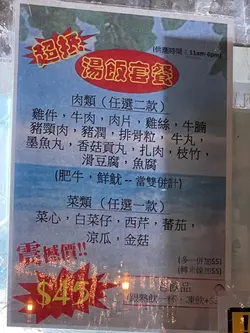 超抵
(供應時間：11am-6pm)
湯飯套餐
肉類 (任選二款)
雞件，牛肉，肉片，雞絲，牛腩
豬頸肉，豬潤，排骨粒，牛丸，
墨魚丸，香菇貢丸，扎肉，枝竹，
滑豆腐，魚腐
(肥牛，鮮魷 -- 當雙併計)
菜類 (任選一款)
菜心，白菜仔，西芹，蕃茄，
涼瓜，金菇
震撼價!!
$45
(多一併加$5)
飲品